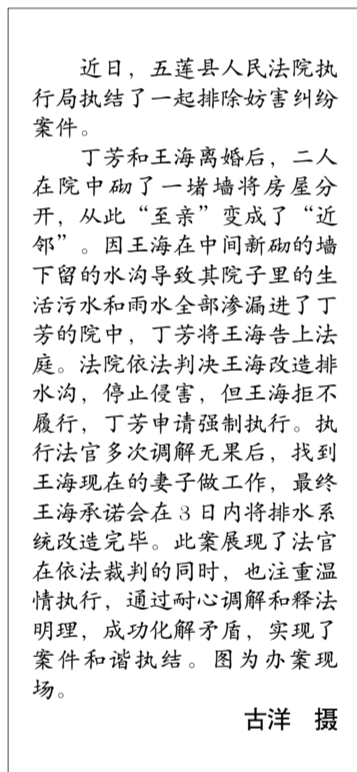 近日，五莲县人民法院执
行局执结了一起排除妨害纠纷
案件。
丁芳和王海离婚后，二人
在院中砌了一堵墙将房屋分
开，从此“至亲”变成了“近
邻”。因王海在中间新砌的墙
下留的水沟导致其院子里的生
活污水和雨水全部渗漏进了丁
芳的院中，丁芳将王海告上法
庭。法院依法判决王海改造排
水沟，停止侵害，但王海拒不
履行，丁芳申请强制执行。执
行法官多次调解无果后，找到
王海现在的妻子做工作，最终
王海承诺会在3日内将排水系
统改造完毕。此案展现了法官
在依法裁判的同时，也注重温
情执行，通过耐心调解和释法
明理，成功化解矛盾，实现了
案件和谐执结。图为办案现
场。
古洋　摄